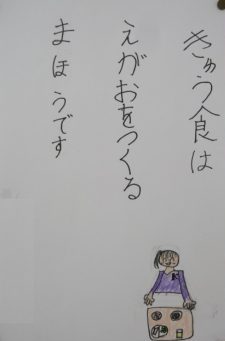 きゅう食は
えがおをつくる
まほうです